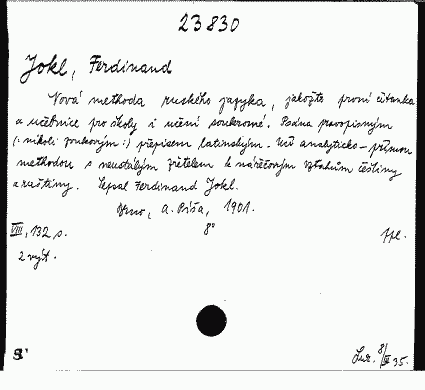 23830
Jokl, Ferdinand
Nová methoda ruského jazyka, jakožto první čítanka
a učebnice pro školy i učení soukromé. Psána pravopisným
(: nikoli zvukovým :) přepisem latinským. Učí analyticko-přímou
methodou s neustálým zřetelem k nářečovým vztahům češtiny
a ruštiny. Sepsal Ferdinand Jokl.
Brno, A. Píša, 1901.
VIII, 132 s. 8° fpl.
2 výt.
8/III 35.